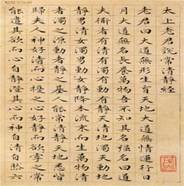 太上老君說常清靜經
老君曰大道無形生育天地大道無情運行日
月大道無名長養萬物吾不知其名強名曰道
夫道者有清有濁有動有靜天清地濁天動地
靜男清女濁男動女靜降本流末而生萬物清
者濁之源動者靜之基人能常清靜天地悉皆
歸夫人神好清而心擾之人心好靜而欲牽之常
能遣其欲而心自靜澄其心而神自清自然六